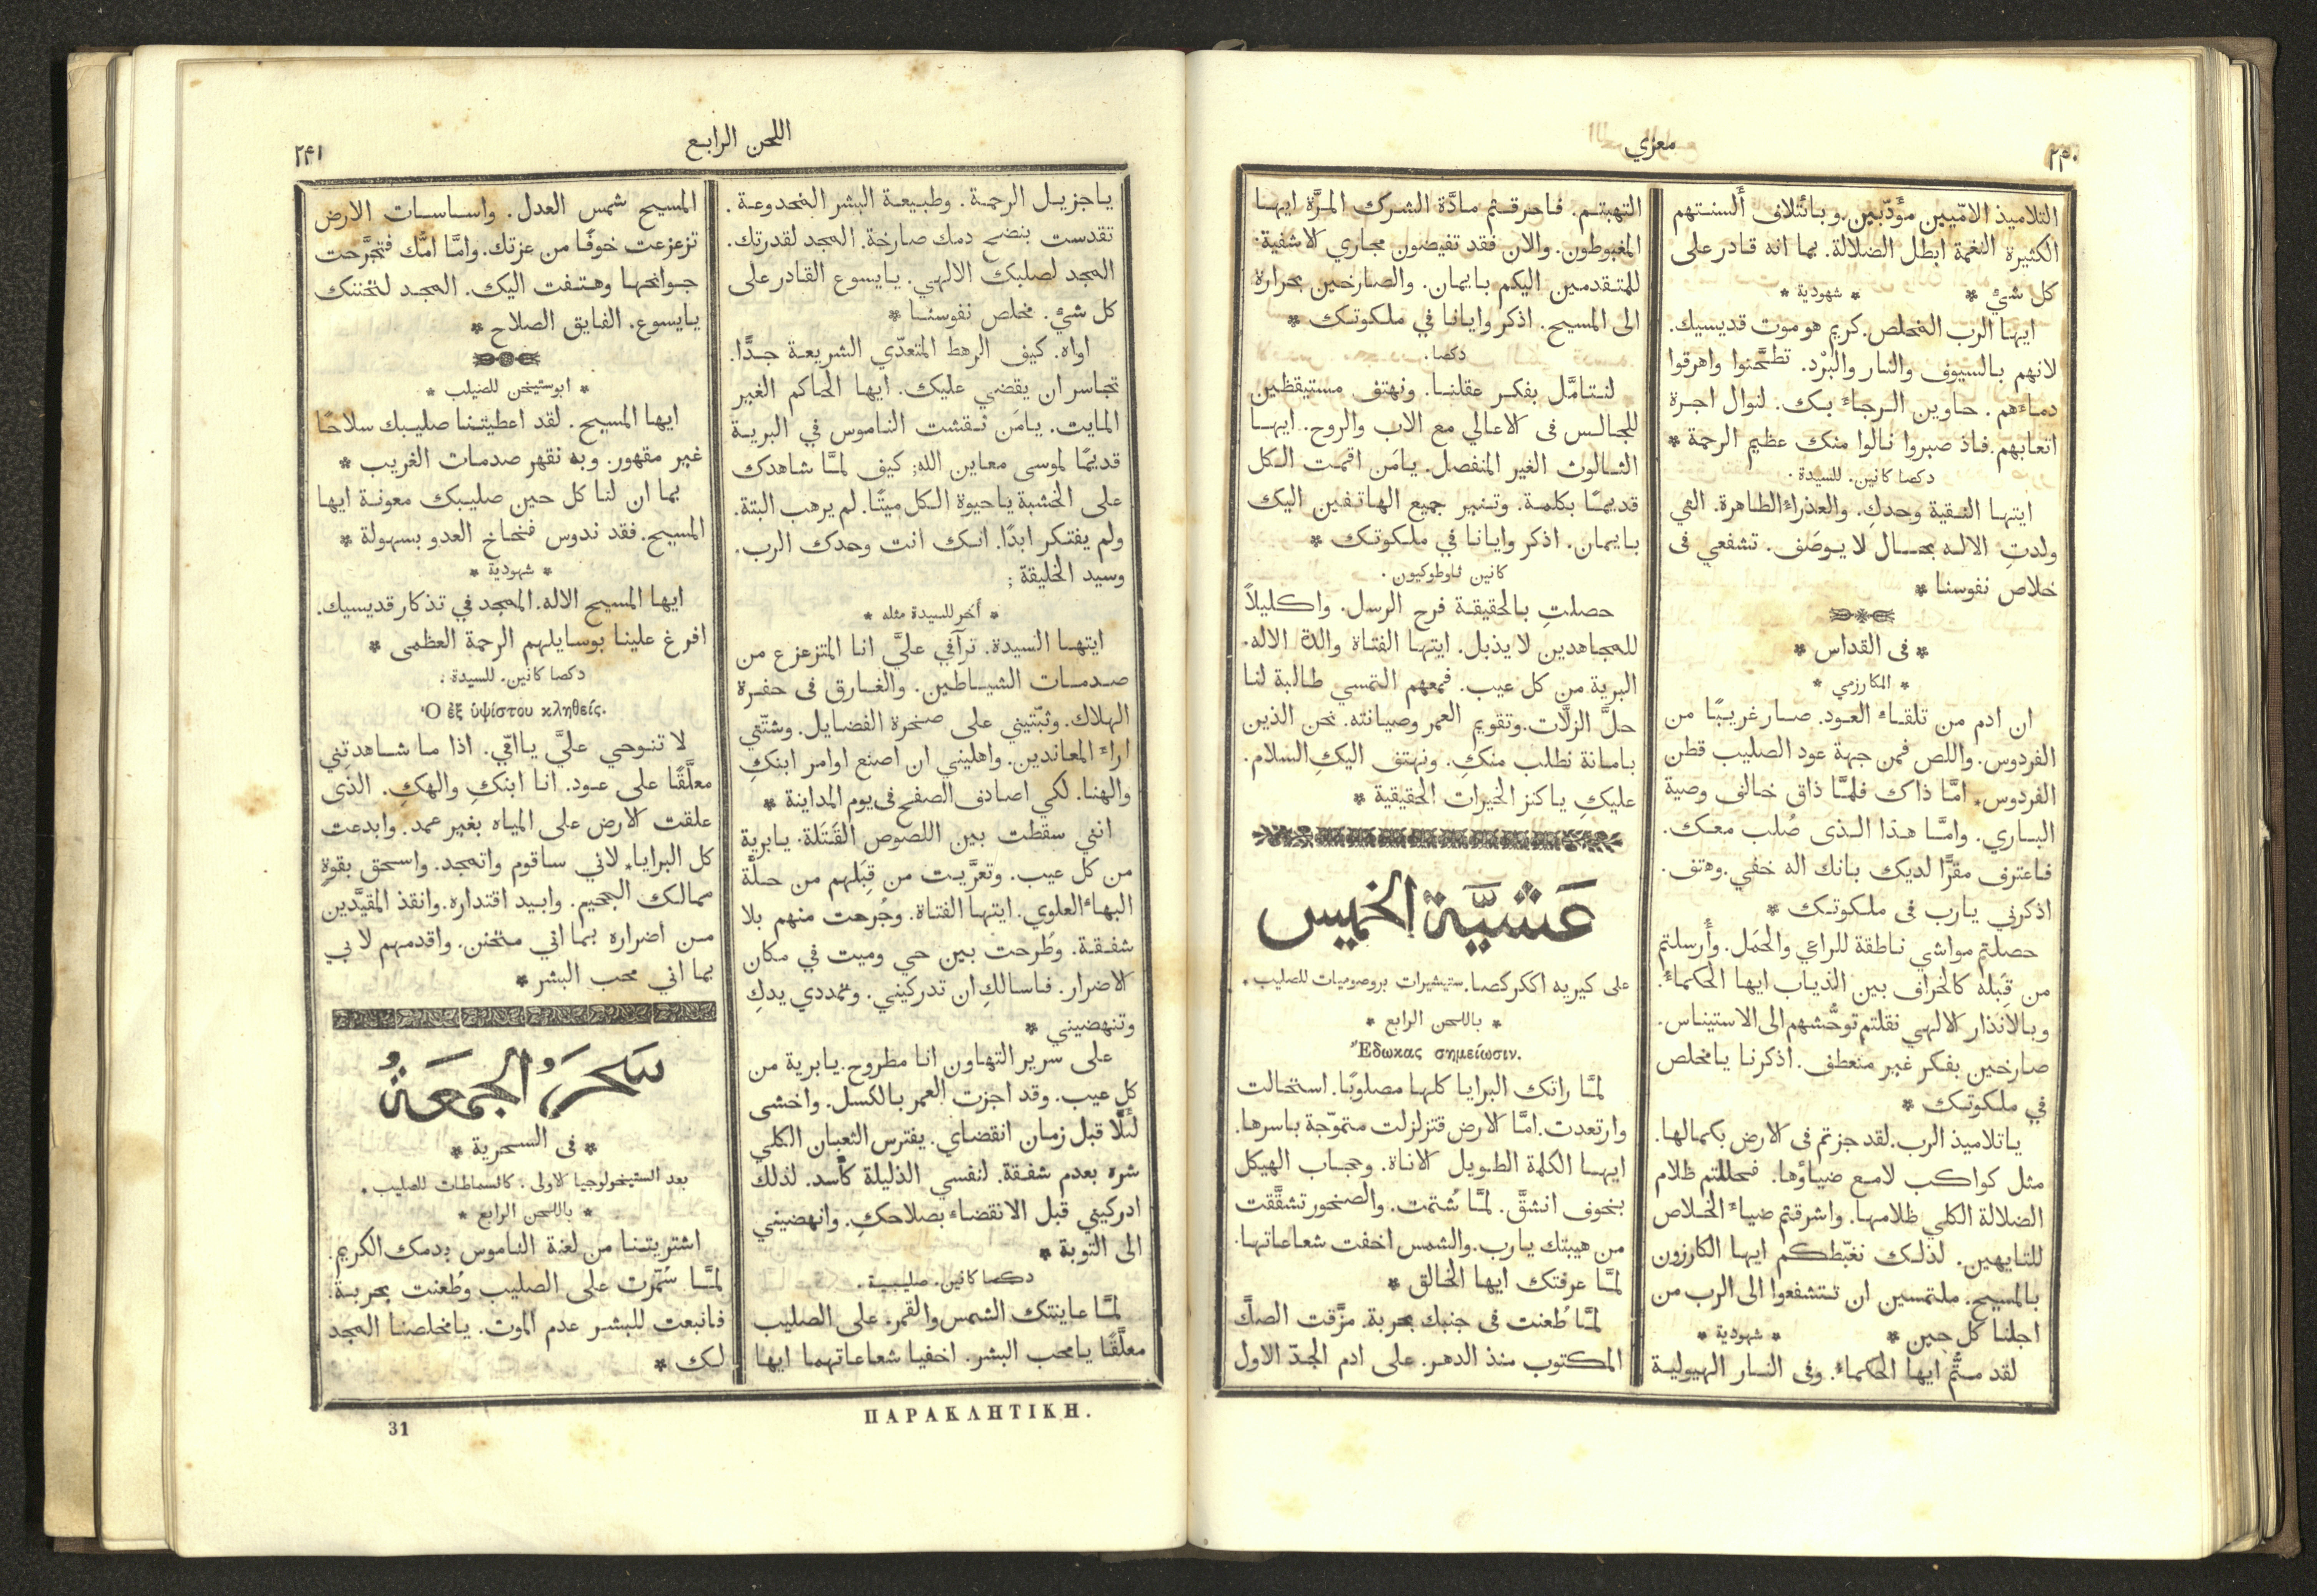 ٢٤٠
معزي
التلاميذ الامّيين مؤَدّبين. وبائتلاف أَلسنتهم
الكثيرة النغمة ابطل الضلالة. بما انه قادر على
كل شيْ * * شهودية *
ايها الرب المخلص. كريم هو موت قديسيك.
لانهم بالسيوف والنار والبرْد. تطحَّنوا واهرقوا
دماءهم. حاوين الرجاءَ بك. لنوال اجرة
اتعابهم. فاذ صبروا نالوا منك عظيم الرحمة *
دكصا كانين. للسيدة.
ايتها النقية وحدكِ. والعذراءُ الطاهرة. التي
ولدتِ الاله بحال لا يوصَف. تشفعي فى
خلاص نفوسنا *
* فى القداس *
* المكارزمي *
ان ادم من تلقاءِ العود. صار غريبًا من
الفردوس. واللص فمن جهة عود الصليب قطن
الفردوس. امَّا ذاك فلمَّا ذاق خالف وصية
الباري. وامَّا هذا الذى صُلب معك.
فاعترف مقرًّا لديك بانك اله خفي. وهتف.
اذكرني يارب فى ملكوتك *
حصلتم مواشي ناطقة للراعي والحَمل. وأُرسلتم
من قِبَله كالخراف بين الذياب ايها الحكماءُ.
وبالانذار الالهي نقلتم توحُّشهم الى الاستيناس.
صارخين بفكر غير منعطف. اذكرنا يا مخلص
في ملكوتك *
يا تلاميذ الرب. لقد جزتم فى الارض بكمالها.
مثل كواكب لامع ضياؤها. فحللتم ظلام
الضلالة الكلي ظلامها. واشرقتم ضياءَ الخلاص
للتايهين. لذلك نغبّطكم ايها الكارزون
بالمسيح. ملتمسين ان تتشفعوا الى الرب من
اجلنا كل حين * * شهودية *
لقد متُّم ايها الحكماءُ. وفى النار الهيولية
التهبتم. فاحرقتم مادَّة الشرك المرَّة ايها
المغبوطون. والان فقد تفيضون مجاري الاشفية.
للمتقدمين اليكم بايمان. والصارخين بحرارة
الى المسيح. اذكر وايانا في ملكوتك *
دكصا.
لنتامَّل بفكر عقلنا. ونهتف مستيقظين
للجالس فى الاعالي مع الاب والروح. ايها
الثالوث الغير المنفصل. يامَن اقمت الكل
قديمًا بكلمة. وتنير جميع الهاتفين اليك
بايمان. اذكر وايانا في ملكوتك *
كانين ثاوطوكيون.
حصلتِ بالحقيقة فرح الرسل. واكليلاً
للمجاهدين لا يذبل. ايتها الفتاة والدة الاله.
البرية من كل عيب. فمعهم التمسي طالبة لنا
حلَّ الزلَّات. وتقويم العمر وصيانته. نحن الذين
بامانة نطلب منكِ. ونهتف اليكِ السلام.
عليكِ يا كنز الخيرات الحقيقية *
عَشيَّة الخميس
على كيريه اككركصا. ستيشيرات بروصوميات للصليب.
* باللحن الرابع *
Ἔδωκας σημείωσιν.
لمَّا راتك البرايا كلها مصلوبًا. استحالت
وارتعدت. امَّا الارض فتزلزلت متموّجة باسرها.
ايها الكلمة الطويل الاناة. وحجاب الهيكل
بخوف انشقَّ. لمَّا شُتمت. والصخور تشقَّقت
من هيبتك يارب. والشمس اخفت شعاعاتها.
لمَّا عرفتك ايها الخالق *
لمَّا طُعنت فى جنبك بحربة. مزَّقت الصكَّ
المكتوب منذ الدهر. على ادم الجدّ الاول
اللحن الرابع
٢٤١
يا جزيل الرحمة. وطبيعة البشر المخدوعة.
تقدست بنضح دمك صارخة. المجد لقدرتك.
المجد لصلبك الالهي. يا يسوع القادر على
كل شيْ. مخلص نفوسنا *
اواه. كيف الرهط المتعدّي الشريعة جدًّا.
تجاسر ان يقضي عليك. ايها الحاكم الغير
المايت. يامَن نقشت الناموس في البرية
قديمًا لموسى معاين الله; كيف لمَّا شاهدك
على الخشبة يا حيوة الكل ميتًا. لم يرهب البتة.
ولم يفتكر ابدًا. انك انت وحدك الرب.
وسيد الخليقة;
* أُخر للسيدة مثله *
ايتها السيدة. ترآفي عليَّ انا المتزعزع من
صدمات الشياطين. والغارق فى حفرة
الهلاك. وثبّتيني على صخرة الفضايل. وشتّتي
اراءَ المعاندين. واهليني ان اصنع اوامر ابنكِ
والهنا. لكي اصادف الصفح فى يوم المداينة *
انني سقطت بين اللصوص القَتَلة. يا برية
من كل عيب. وتعرَّيت من قِبَلهم من حلَّة
البهاءِ العلوي. ايتها الفتاة. وجُرحت منهم بلا
شفقة. وطُرحت بين حي وميت في مكان
الاضرار. فاسالكِ ان تدركيني. وتمددي يدكِ
وتنهضيني *
على سرير التهاون انا مطروح. يا برية من
كل عيب. وقد اجزت العمر بالكسل. واخشى
لئلَّا قبل زمان انقضاي. يفترس الثعبان الكلي
شره بعدم شفقة. لنفسي الذليلة كأَسد. لذلك
ادركيني قبل الانقضاءِ بصلاحكِ. وانهضيني
الى التوبة *
دكصا كانين. صليبية.
لمَّا عاينتك الشمس والقمر. على الصليب
معلَّقًا يا محب البشر. اخفيا شعاعاتهما ايها
المسيح شمس العدل. واساسات الارض
تزعزعت خوفًا من عزتك. وامَّا امُّك فتجرَّحت
جوانحها وهتفت اليك. المجد لتحننك
يا يسوع. الفايق الصلاح *
* ابوستيخن للصليب *
ايها المسيح. لقد اعطيتنا صليبك سلاحًا
غير مقهور. وبه نقهر صدمات الغريب *
بما ان لنا كل حين صليبك معونة ايها
المسيح. فقد ندوس فخاخ العدو بسهولة *
* شهودية *
ايها المسيح الاله. الممجد في تذكار قديسيك.
افرغ علينا بوسايلهم الرحمة العظمى *
دكصا كانين. للسيدة.
Ὁ ἐξ ὑψίστου κληθείς.
لا تنوحي عليَّ يا امّي. اذا ما شاهدتِني
معلَّقًا على عود. انا ابنكِ والهكِ. الذى
علقت الارض على المياه بغير عمد. وابدعت
كل البرايا. لاني ساقوم واتمجد. واسحق بقوةٍ
ممالك الجحيم. وابيد اقتداره. وانقذ المقيَّدين
من أضراره بما اني متحنن. واقدمهم لابي
بما اني محب البشر *
سَحَرَ الجمعَةُ
* فى السحرية *
بعد الستيخولوجيا الاولى. كاثسماطات للصليب.
* باللحن الرابع *
اشتريتنا من لعنة الناموس بدمك الكريم.
لمَّا سُمّرت على الصليب وطُعنت بحربة.
فانبعت للبشر عدم الموت. يا مخلصنا المجد
لك *
ΠΑΡΑΚΛΗΤΙΚΗ.
31